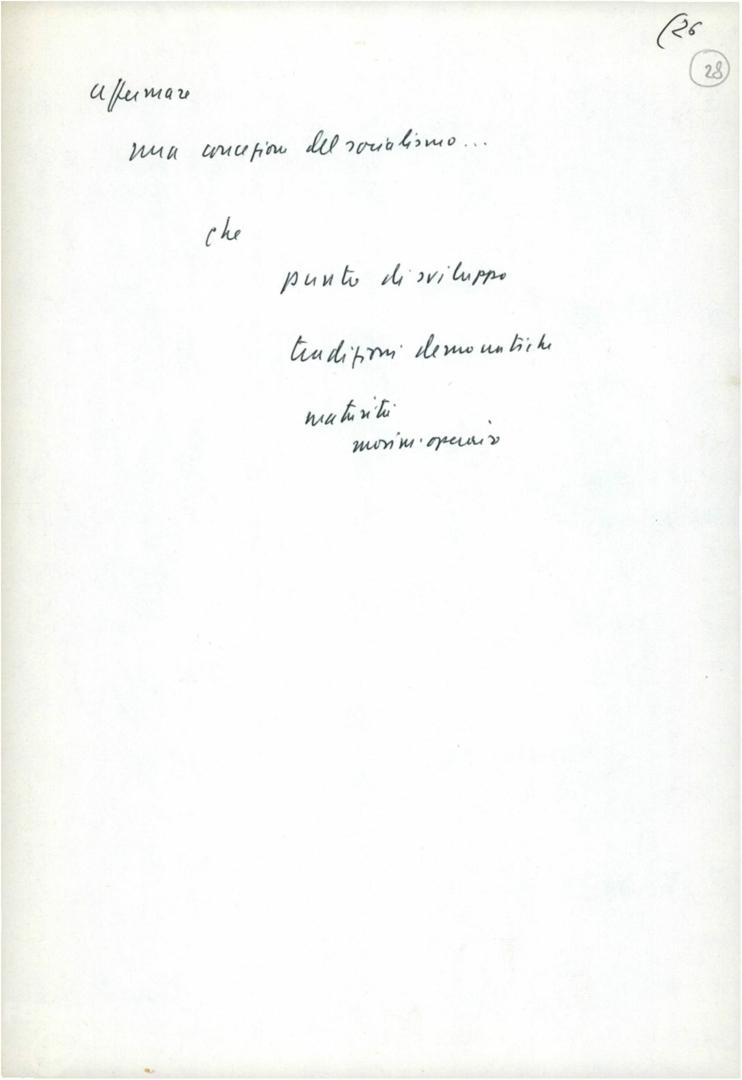 (26
28
affermare
una concezione del socialismo...
che
punto di sviluppo
tradizioni democratiche
maturità
movim. operaio